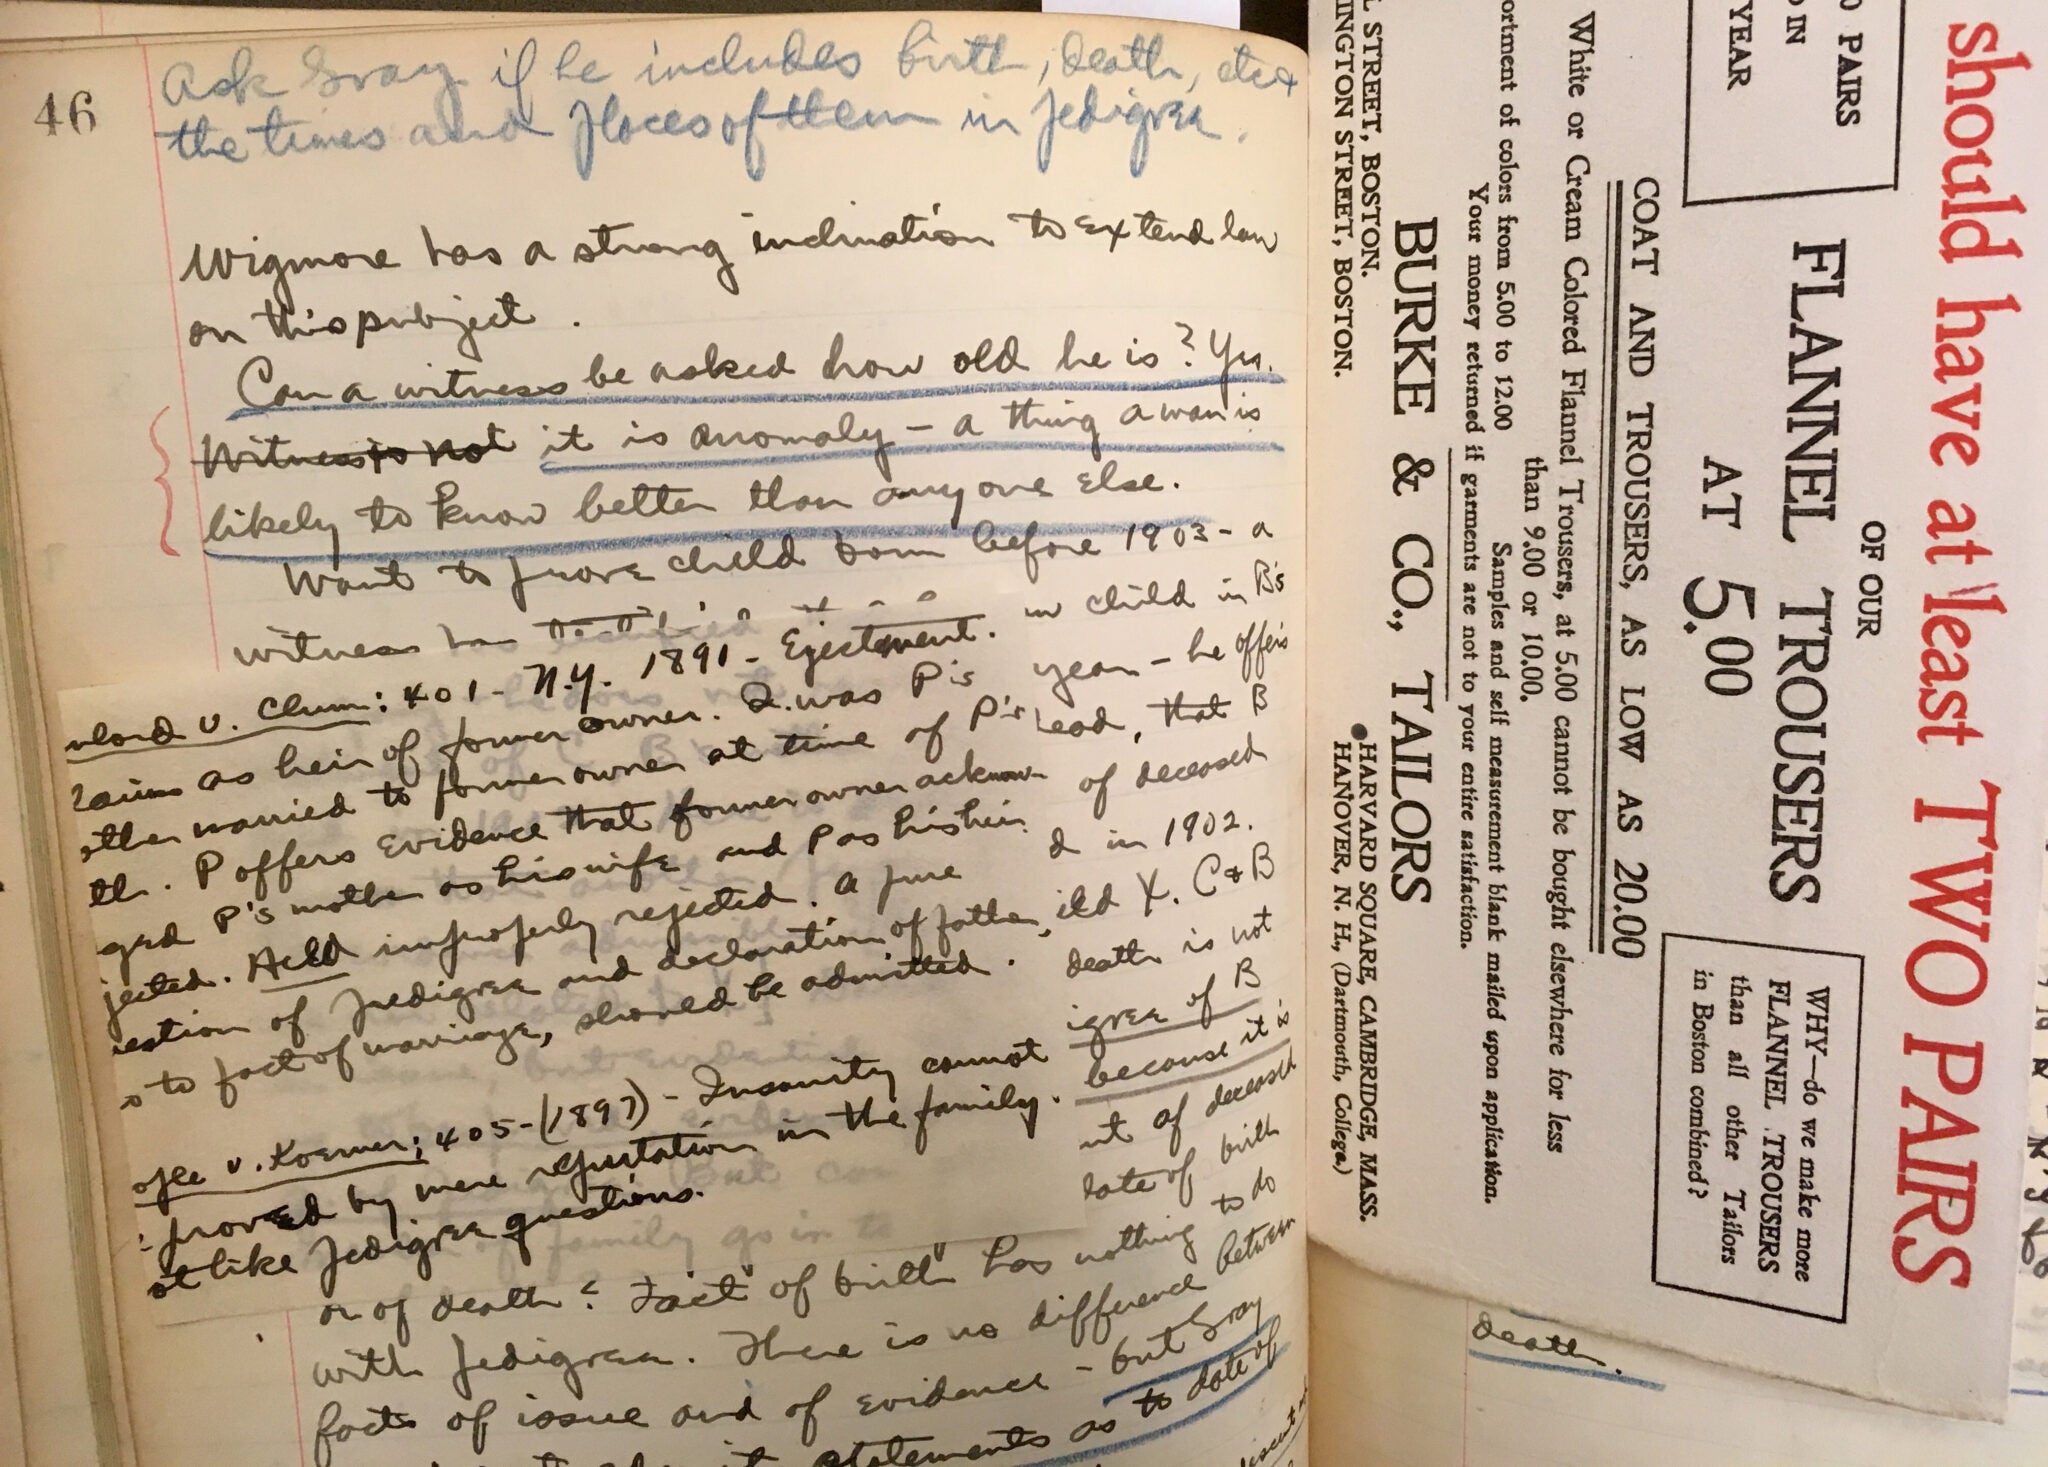 46
Ask Gray if he includes birth, death, etc &
the times and places of them in pedigree.
Wigmore has a strong inclination to extend law
on this subject.
Can a witness be asked how old he is? Yes.
Witness is not it is anomaly – a thing a man is
likely to know better than anyone else.
Want to prove child born before 1903 – a
witness has
v. Clum: 401 – N.Y. 1891 – Ejectment.
as heir of former owner. Q. was P's
married to former owner at time of P's
P offers evidence that former owner acknow-
P's mother as his wife and P as his heir.
Held improperly rejected. A pure
of pedigree and declaration of father,
to fact of marriage, should be admitted.
v. Koerner; 405 – (1897) – Insanity cannot
proved by mere reputation in the family.
like pedigree questions.
child in B's
year – he offers
that B
of deceased
in 1902.
X. C & B
death is not
of B
because it is
of deceased
of birth
to do
or of death? "Fact" of birth has nothing
with pedigree. There is no difference between
facts of issue and of evidence – but Gray
statements as to date of
should have at least TWO PAIRS
OF OUR
FLANNEL TROUSERS
AT 5.00
PAIRS
IN
YEAR
WHY—do we make more
FLANNEL TROUSERS
than all other Tailors
in Boston combined?
COAT AND TROUSERS, AS LOW AS 20.00
White or Cream Colored Flannel Trousers, at 5.00 cannot be bought elsewhere for less
than 9.00 or 10.00.
of colors from 5.00 to 12.00
Samples and self measurement blank mailed upon application.
Your money returned if garments are not to your entire satisfaction.
BURKE & CO., TAILORS
STREET, BOSTON.
STREET, BOSTON.
HARVARD SQUARE, CAMBRIDGE, MASS.
HANOVER, N. H., (Dartmouth, College.)
death.